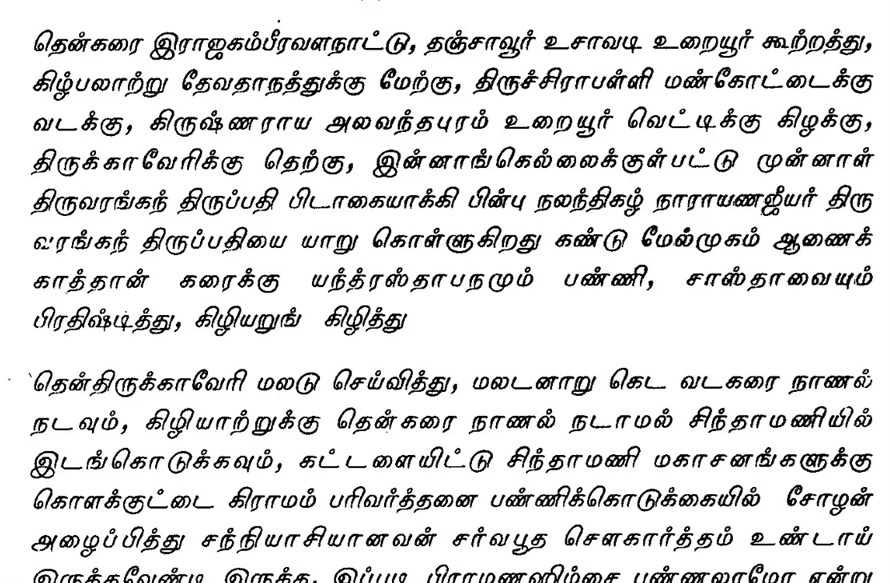 தென்கரை இராஜகம்பீரவளநாட்டு, தஞ்சாவூர் உசாவடி உறையூர் கூற்றத்து,
கிழ்பலாற்று தேவதாநத்துக்கு மேற்கு, திருச்சிராபள்ளி மண்கோட்டைக்கு
வடக்கு, கிருஷ்ணராய அலவந்தபுரம் உறையூர் வெட்டிக்கு கிழக்கு,
திருக்காவேரிக்கு தெற்கு, இன்னாங்கெல்லைக்குள்பட்டு முன்னாள்
திருவரங்கந் திருப்பதி பிடாகையாக்கி பின்பு நலந்திகழ் நாராயணஜீயர் திரு
வரங்கந் திருப்பதியை யாறு கொள்ளுகிறது கண்டு மேல்முகம் ஆணைக்
காத்தான் கரைக்கு யந்த்ரஸ்தாபநமும் பண்ணி, சாஸ்தாவையும்
பிரதிஷ்டித்து, கிழியறுங் கிழித்து
தென்திருக்காவேரி மலடு செய்வித்து, மலடனாறு கெட வடகரை நாணல்
நடவும், கிழியாற்றுக்கு தென்கரை நாணல் நடாமல் சிந்தாமணியில்
இடங்கொடுக்கவும், கட்டளையிட்டு சிந்தாமணி மகாசனங்களுக்கு
கொளக்குட்டை கிராமம் பரிவர்த்தனை பண்ணிக்கொடுக்கையில் சோழன்
அழைப்பித்து சந்நியாசியானவன் சர்வபூத சௌகார்த்தம் உண்டாய்
இருக்கவேண்டி இருக்க, இப்படி பிராமணஹிம்சை பண்ணலாமோ என்று